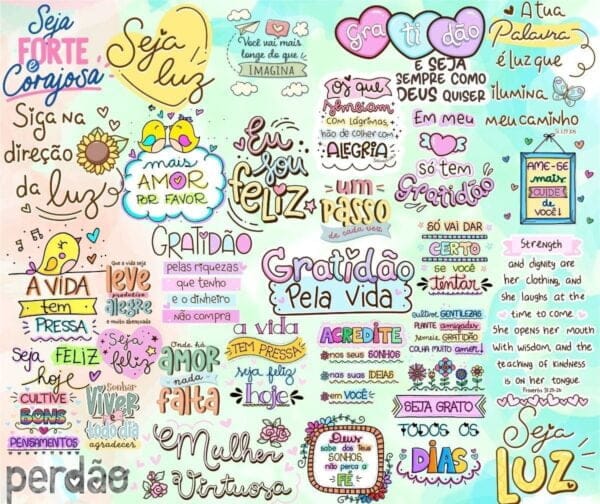 Seja
FORTE
e
Corajosa
Seja
luz
Você vai mais
longe do que
IMAGINA
Gra ti dão
E SEJA
SEMPRE COMO
DEUS QUISER
A tua
Palavra
é luz que
ilumina
meu caminho
Siga na
direção
da luz
mais
AMOR
POR FAVOR
Eu
sou
FELIZ
OS QUE
semeiam
COM LÁGRIMAS,
HÃO DE COLHER COM
ALEGRIA
Em meu
Só tem
Gratidão
um
PASSO
de cada vez
AME-SE
mais
CUIDE
DE VOCÊ!
A VIDA
tem
PRESSA
Que a vida seja
leve
produtiva
alegre
e muito abençoada
GRATIDÃO
pelas riquezas
que tenho
e o dinheiro
não compra
Gratidão
Pela Vida
SÓ VAI DAR
CERTO
SE VOCÊ
tentar
Strength
and dignity are
her clothing, and
she laughs at the
time to come
She opens her mouth
with wisdom, and the
teaching of kindness
is on her tongue
Proverbs 31:25-26
Seja FELIZ
hoje
CULTIVE
BONS
PENSAMENTOS
Seja
feliz
Sonhar
VIVER
e
todo dia
agradecer
Onde há
AMOR
nada
falta
a vida
TEM PRESSA
seja feliz
hoje
ACREDITE
nos seus SONHOS
nas suas IDEIAS
em VOCÊ
cultive GENTILEZAS
PLANTE amizades
semeie GRATIDÃO
COLHA MUITO amor
SEJA GRATO
TODOS OS
DIAS
perdão
Mulher
Virtuosa
Deus
sabe dos Teus
SONHOS,
não perca a
FÉ
Seja
LUZ